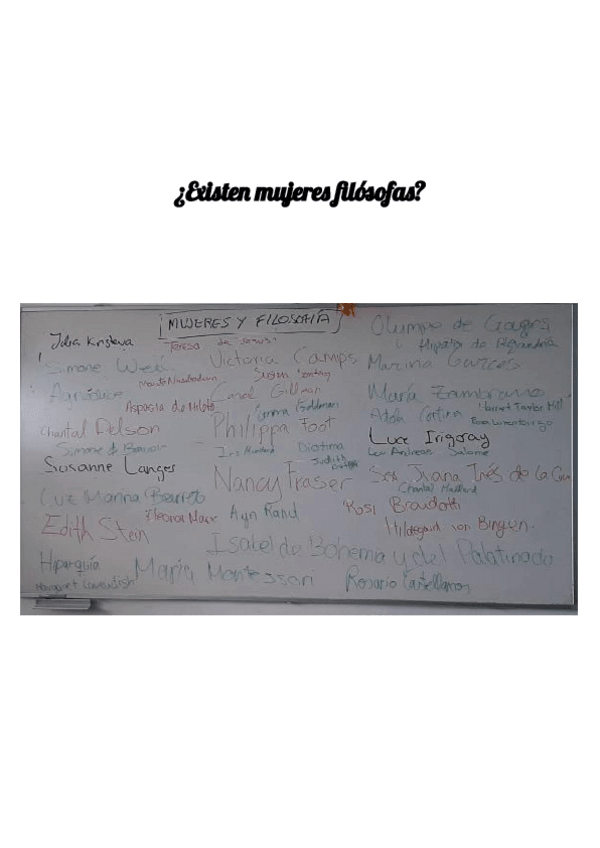 ¿Existen mujeres filósofas?
MUJERES Y FILOSOFÍA
Julia Kristeva
Teresa de Jesús
Olympe de Gouges
Hipatia de Alejandría
Simone Weil
Victoria Camps
Marina Garcés
Susan Sontag
Agnódice
Carol Gilligan
María Zambrano
Aspasia de Mileto
Emma Goldman
Adela Cortina
Harriet Taylor Mill
Chantal Delson
Philippa Foot
Luce Irigaray
Simone de Beauvoir
Iris Murdoch
Diotima
Lou Andreas Salomé
Susanne Langer
Judith
Nancy Fraser
Sor Juana Inés de la Cruz
Luz Marina Barreto
Rosi Braidotti
Edith Stein
Eleonor Marx
Ayn Rand
Hildegard von Bingen.
Isabel de Bohemia y del Palatinado
Hiparquía
María Montessori
Rosario Castellanos
Margaret Cavendish